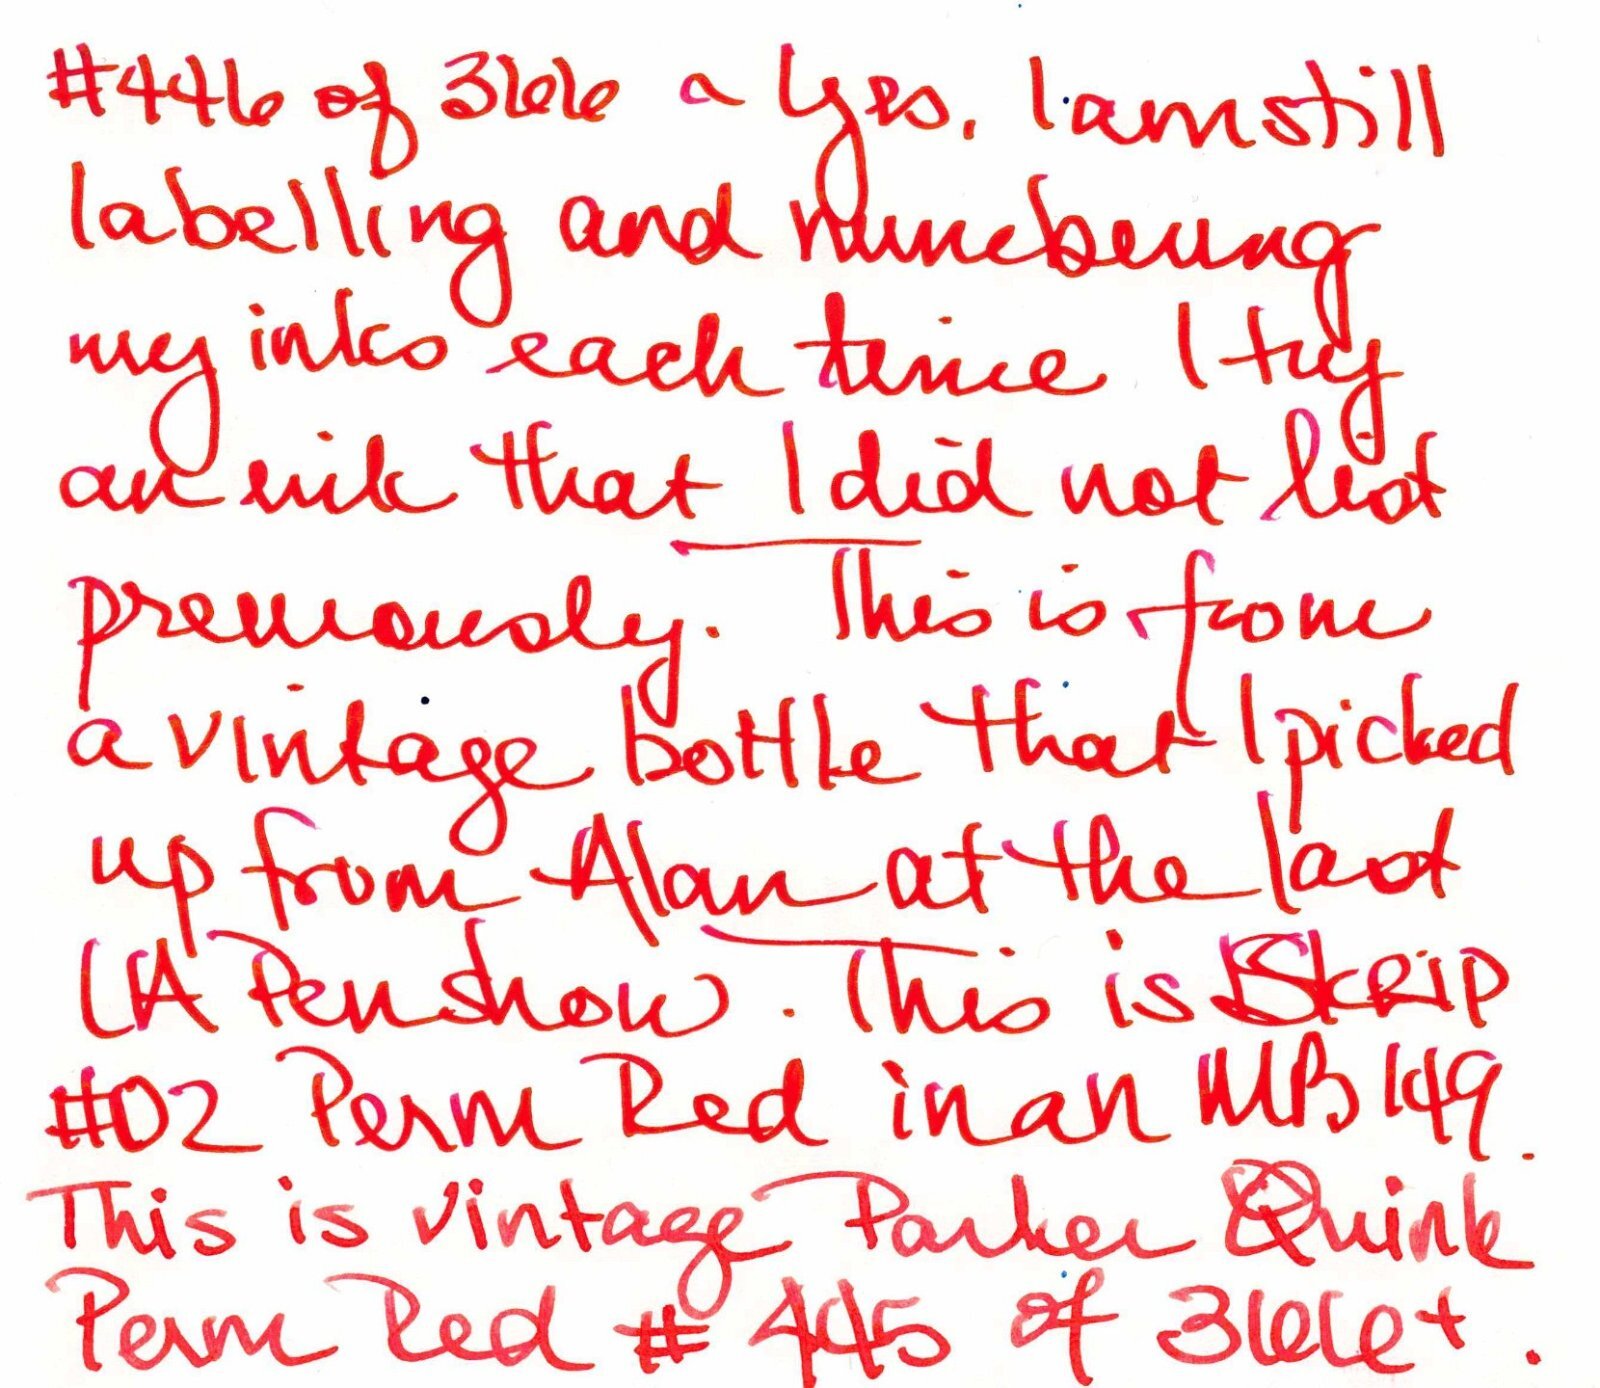 #446 of 366 ~ Yes, I am still
labelling and numbering
my inks each time I try
an ink that I did not list
previously. This is from
a vintage bottle that I picked
up from Alan at the last
LA Penshow. This is SKRIP
#02 Perm Red in an MB 149.
This is vintage Parker Quink
Perm Red # 445 of 366+.